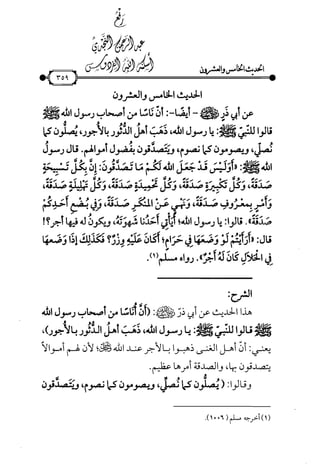 رفع
عبد الرحمن النجدي
أسكنه الله الفردوس
الحديث الخامس والعشرون
٣٥٩
الحديث الخامس والعشرون
عن أبي ذر ﷺ - أيضًا -: أنّ ناسًا من أصحاب رسول الله ﷺ
قالوا للنّبيّ ﷺ: يا رسول الله، ذهبَ أهلُ الدُّثُورِ بالأجور، يُصلُّون كما
نُصلِّي، ويصومون كما نصوم، ويتصدَّقون بفُضول أموالهم. قال رسول
ﷺ: «أَوَلَيْسَ قَدْ جَعَلَ اللهُ لَكُمْ مَا تَصَدَّقُونَ: إِنَّ بِكُلِّ تَسْبِيحَةٍ
صَدَقَةً، وَكُلِّ تَكْبِيرَةٍ صَدَقَةً، وَكُلِّ تَحْمِيدَةٍ صَدَقَةً، وَكُلِّ تَهْلِيلَةٍ صَدَقَةً،
وَأَمْرٍ بِمَعْرُوفٍ صَدَقَةً، وَنَهْيٍ عَنْ المُنْكَرِ صَدَقَةً، وَفِي بُضْعِ أَحَدِكُمْ
صَدَقَةً». قالوا: يا رسول الله؛ أيَأتي أحَدُنا شهوَتَهُ، ويكونُ له فيها أجر؟!
قال: «أَرَأَيْتُمْ لَوْ وَضَعَهَا فِي حَرَامٍ؛ أَكَانَ عَلَيْهِ وِزْرٌ؟ فَكَذَلِكَ إِذَا وَضَعَهَا
فِي الْحَلَالِ كَانَ لَهُ أَجْرٌ». رواه مسلم(١).
الشرح:
هذا الحديث عن أبي ذرّ: (أنَّ أُناسًا من أصحاب رسول الله
ﷺ قالوا للنّبي ﷺ: يا رسول الله، ذهبَ أهلُ الدُّثُورِ بالأجور)،
يعني: أنّ أهل الغنى ذهبوا بالأجر عند الله؛ لأن لهم أموالاً
يتصدقون بها، والصدقة أمرها عظيم.
وقالوا: (يُصلُّون كما نُصلِّي، ويصومون كما نصوم، ويَتصدَّقون
(١) أخرجه مسلم (١٠٠٦).